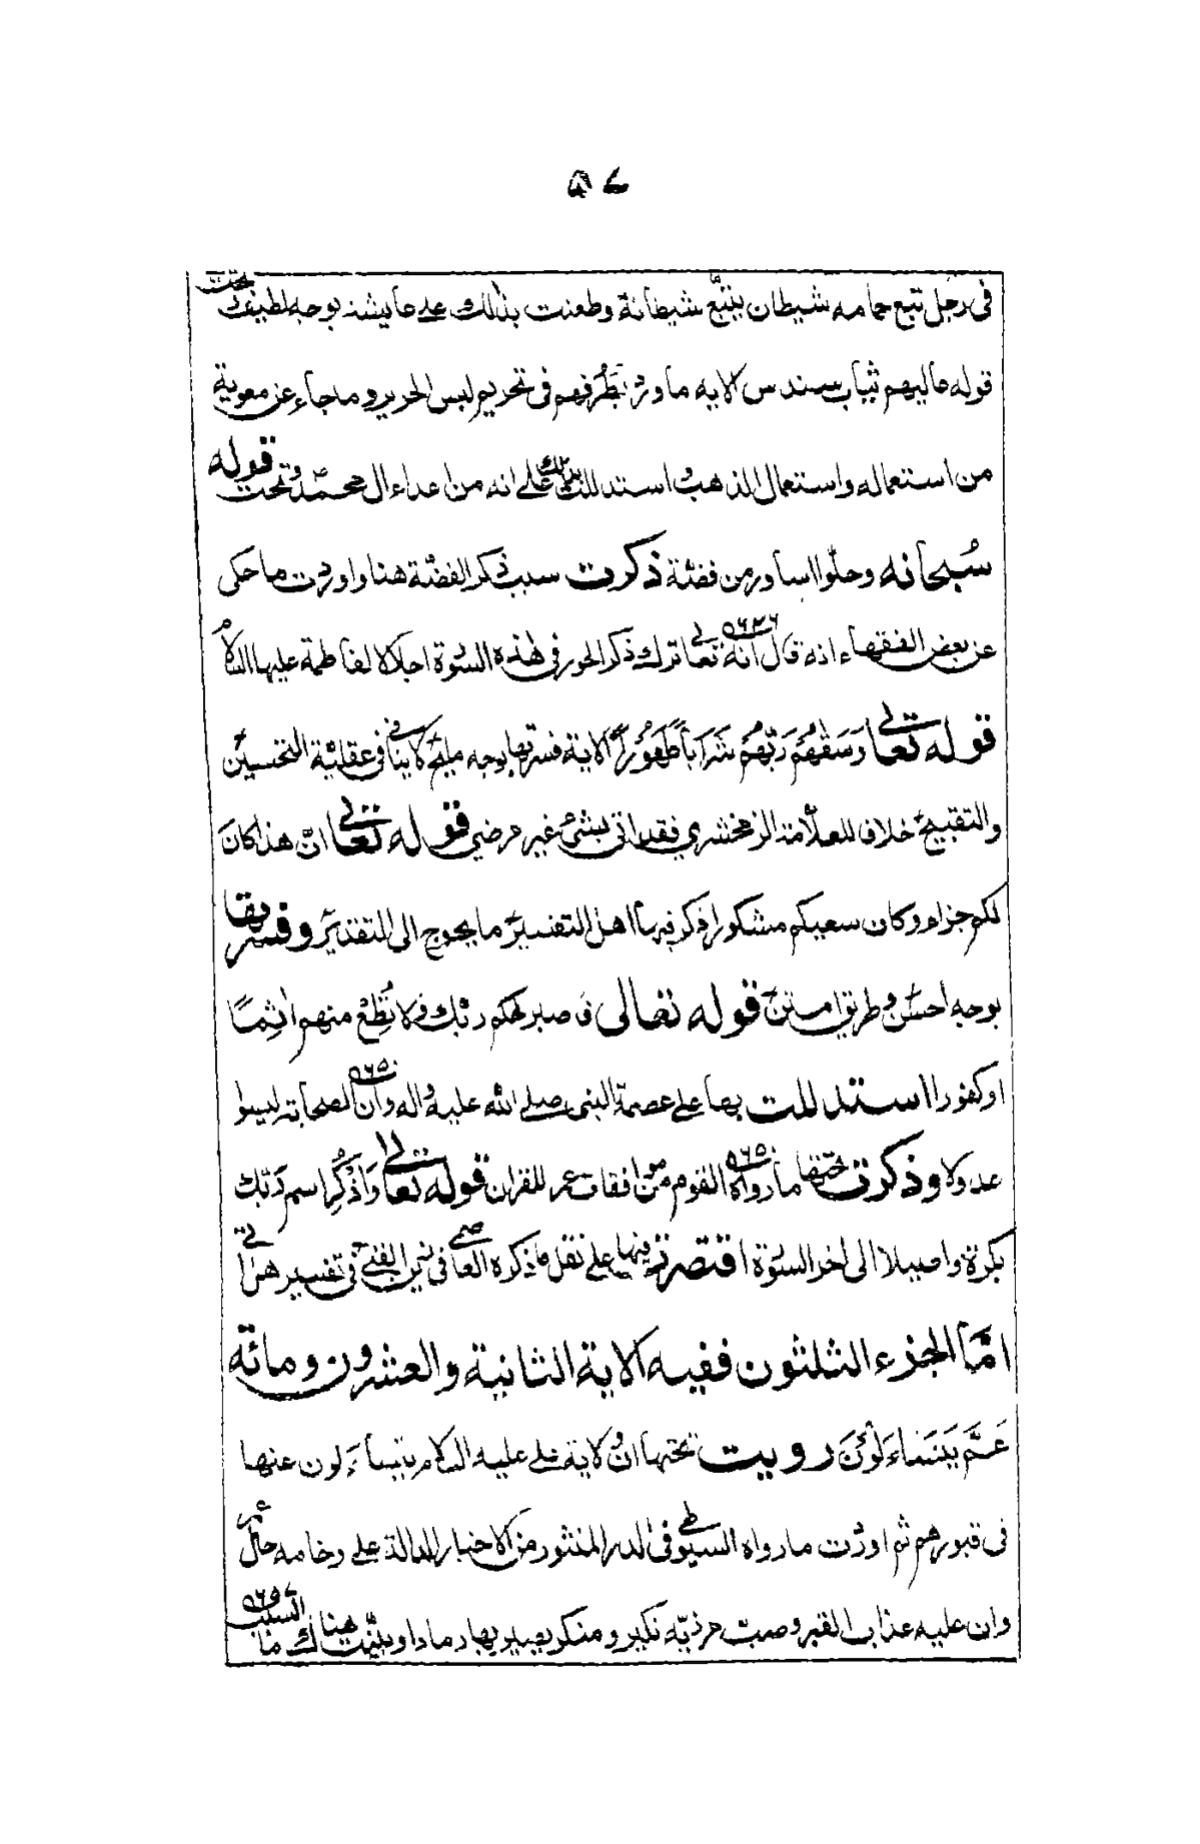 ٥٧
في رجل تبع حمامه شيطان يتبع شيطانة وطعنت بذلك على عايشة بوجه لطيف وتحت
قوله عاليهم ثياب سندس الايه ما ورد بطرقهم في تحريم لبس الحرير وما جاء عن معوية
من استعماله واستعمال الذهب واستدللت بذلك على انه من اعداء ال محمد وتحت قوله
سبحانه وحلوا اساور من فضة ذكرت سبب ذكر الفضة هنا واوردت ما حكى
عن بعض الفقهاء انه قال انه تعالى ترك ذكر الحور في هذه السورة اجلالا لفاطمة عليها السلام
قوله تعالى وَسَقٰهُمْ رَبُّهُمْ شَرَاباً طَهُوْراً الاية فسرتها بوجه مليح لا ينافي عقلية التحسين
والتقبيح خلاف للعلامة الزمخشري فقد اتى بشئ غير مرضي قوله تعالى انّ هذا كان
لكم جزاء وكان سعيكم مشكورا ذكر فيها اهل التفسير ما يحوج الى التقدير وفسرتها
بوجه احسن وطريق امتن قوله تعالى فاصبر لحكم ربك ولا تطع منهم اٰثما
او كفورا استدللت بها على عصمة النبي صلى الله عليه واله وان الصحابة ليسوا
عدولا وذكرت تحتها ما رواه القوم من موافقات عمر للقران قوله تعالى وَاذْكُرِ اسم رَبّك
بكرة واصيلا الى اخر السورة اقتصرت فيها على نقل ما ذكره العاصمي في زين الفتى في تفسير هل اتى
امّا الجزء الثلثون ففيه الاية الثانية والعشرون ومائة
عَمَّ يَتَسَاءَلُوْنَ رويت تحتها ان ولاية علي عليه السلام يتساءلون عنها
في قبورهم ثم اوردت ما رواه السيوطي في الدر المنثور من الاخبار الدالة على وخامه حال عمر
وان عليه عذاب القبر وصب مرزبّه نكير ومنكر يصير بها رمادا وبيّنت هنالك ما